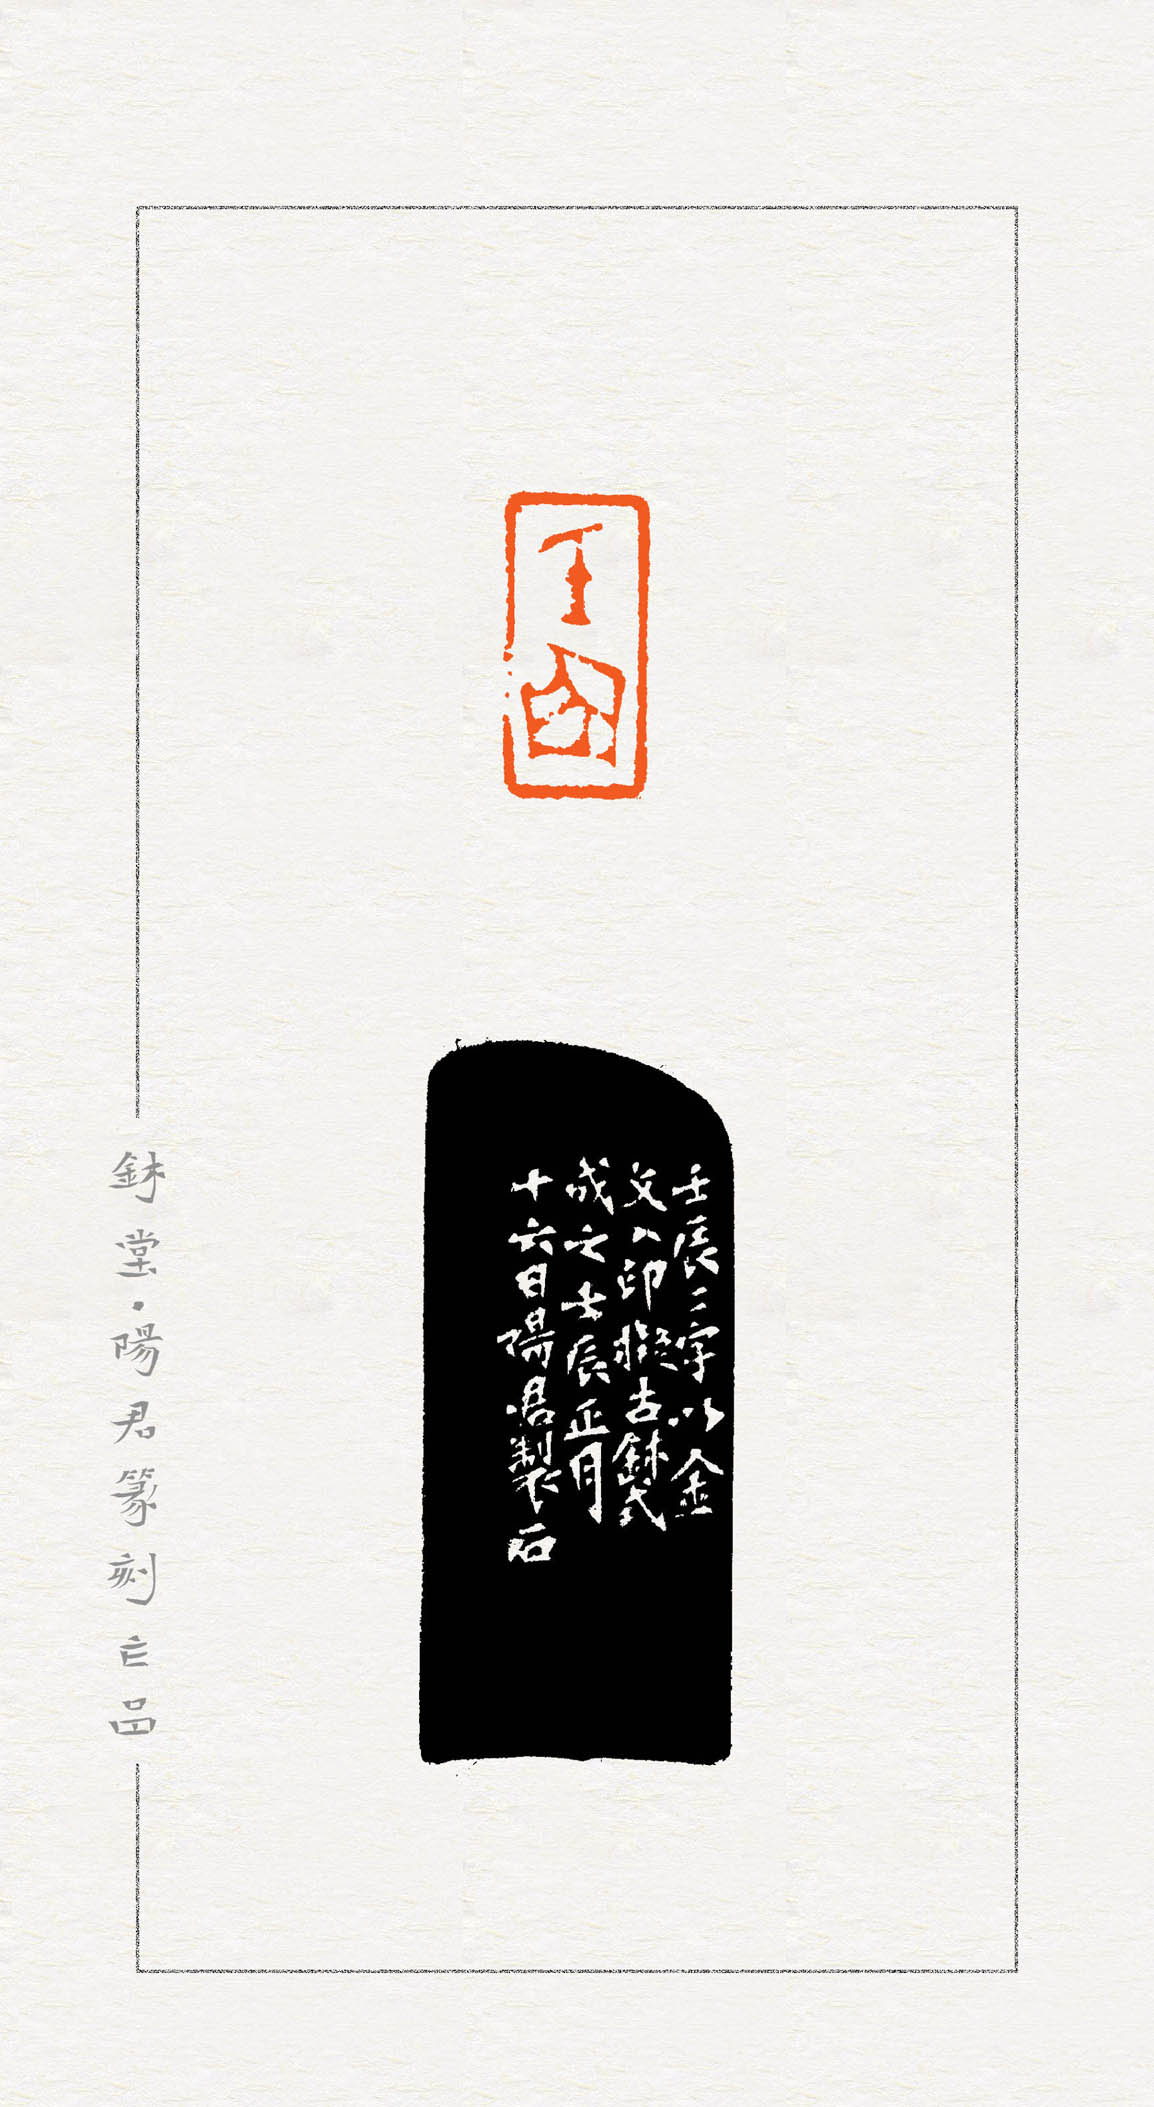 壬辰
壬辰二字以金
文入印擬古鉥式
成之壬辰正月
十六日陽君製石
鉥堂·陽君篆刻亡品